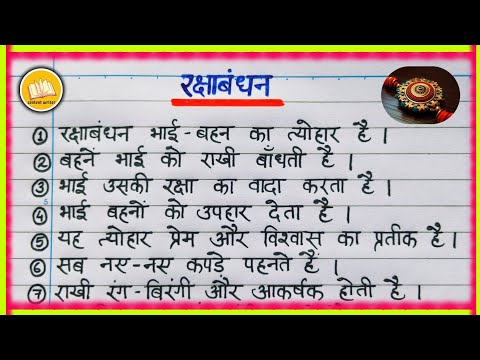 content writer
रक्षाबंधन
① रक्षाबंधन भाई-बहन का त्योहार है ।
② बहनें भाई को राखी बाँधती है ।
③ भाई उसकी रक्षा का वादा करता है ।
④ भाई बहनों को उपहार देता है ।
⑤ यह त्योहार प्रेम और विश्वास का प्रतीक है ।
⑥ सब नए-नए कपड़े पहनते हैं ।
⑦ राखी रंग-बिरंगी और आकर्षक होती है ।